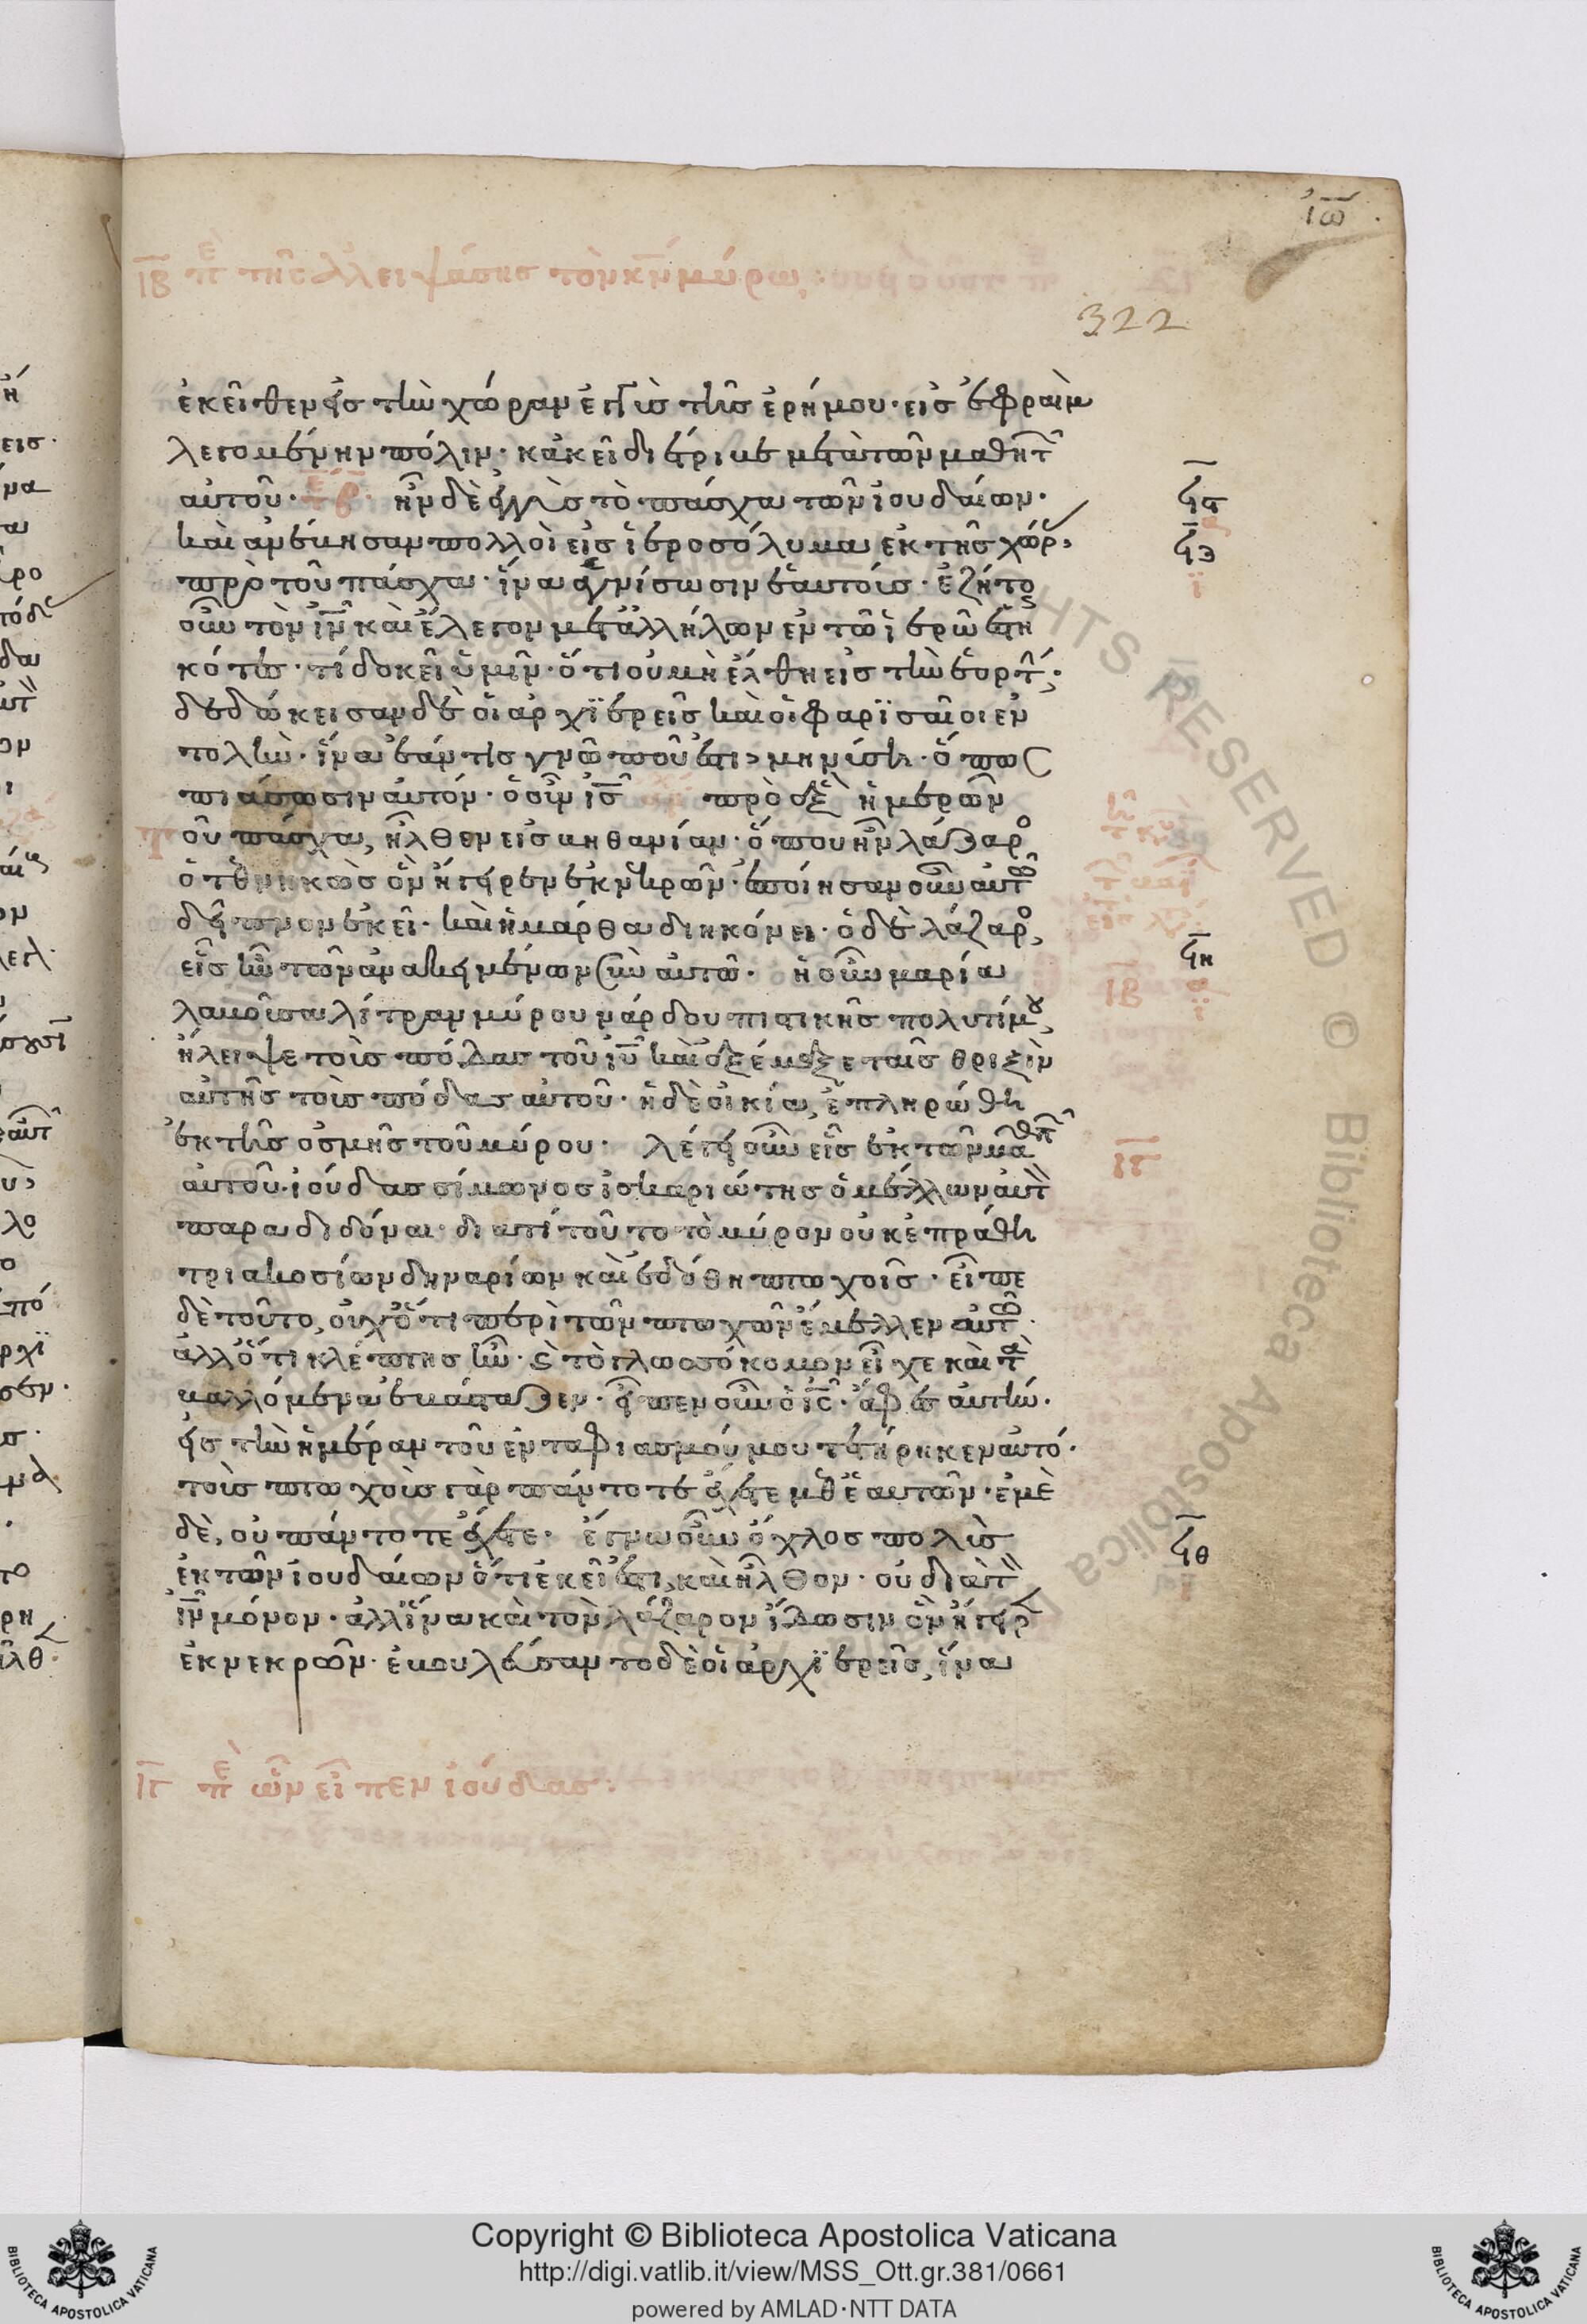 ἰω̅
ι̅β πε τῆς ἀλειψάσης τὸν κν̅ μύρω
322
ἐκεῖθεν εἰς τὴν χώραν ἐγγὺς τῆς ἐρήμου· εἰς ἐφραὶμ
λεγομένην πόλιν· κἀκεῖ διέτριβε μετὰ τῶν μαθητ
αὐτοῦ· ἦν δὲ ἐγγὺς τὸ πάσχα τῶν ἰουδαίων·
καὶ ἀνέβησαν πολλοὶ εἰς ἱεροσόλυμα ἐκ τῆς χώρ
πρὸ τοῦ πάσχα· ἵνα ἁγνίσωσιν ἑαυτούς· ἐζήτο
οὖν τὸν ιν̅ καὶ ἔλεγον μετ ἀλλήλων ἐν τῶ ἱερῶ ἑστη
κότες· τί δοκεῖ ὑμῖν· ὅτι οὐ μὴ ἔλθη εἰς τὴν ἑορτ
δεδώκεισαν δὲ οἱ ἀρχϊερεῖς καὶ οἱ φαρϊσαῖοι ἐν
τολὴν· ἵνα ἐάν τις γνῶ ποῦ ἐστι μηνύση· ὅπως
πιάσωσιν αὐτόν· ὁ οὖν ις̅ πρὸ ἓξ ἡμερῶν
οῦ πάσχα, ἦλθεν εἰς βηθανίαν· ὅπου ἦν λάζαρο
ὁ τεθνηκὼς ὃν ἤγειρεν ἐκ νεκρῶν· ἐποίησαν οὖν αὐτῶ
δεῖπνον ἐκεῖ· καὶ ἡ μάρθα διηκόνει· ὁ δὲ λάζαρο
εἷς ἦν τῶν ἀνακειμένων σὺν αὐτῶ· ἡ οὖν μαρία
λαβοῦσα λίτραν μύρου νάρδου πιστικῆς πολυτίμου
ἤλειψε τοὺς πόδας τοῦ ιυ̅ καὶ ἐξέμαξε ταῖς θριξὶν
αὐτῆς τοὺς πόδας αὐτοῦ· ἡ δὲ οἰκία, ἐπληρώθη
ἐκ τῆς ὀσμῆς τοῦ μύρου· λέγει οὖν εἷς ἐκ τῶν μαθητ
αὐτοῦ· ἰούδας σίμωνος ἰσκαριώτης ὁ μέλλων αὐτ
παραδιδόναι· διατί τοῦτο τὸ μύρον οὐκ ἐπράθη
τριακοσίων δηναρίων καὶ ἐδόθη πτωχοῖς· εἶπε
δὲ τοῦτο, οὐχ ὅτι περὶ τῶν πτωχῶν ἔμελλεν αὐτῶ
ἀλλ ὅτι κλέπτης ἦν· ϛ τὸ γλωσσόκομον εἶχε καὶ τὰ
βαλλόμενα ἐβάσταζεν· εἶπεν οὖν ὁ ις̅· ἄφες αὐτήν·
εἰς τὴν ἡμέραν τοῦ ἐνταφιασμοῦ μου τετήρηκεν αὐτό·
τοὺς πτωχοὺς γὰρ πάντοτε ἔχετε μεθ ἑαυτῶν· ἐμὲ
δὲ, οὐ πάντοτε ἔχετε· ἔγνω οὖν ὄχλος πολὺς
ἐκ τῶν ἰουδαίων ὅτι ἐκεῖ ἐστι, καὶ ἦλθον· οὐ διὰ τ
ιν̅ μόνον· ἀλλ ἵνα καὶ τὸν λάζαρον ἴδωσιν ὃν ἤγειρ
ἐκ νεκρῶν· ἐβουλεύσαντο δὲ οἱ ἀρχϊερεῖς, ἵνα
ι̅γ πε ὧν εἶπεν ἰούδας:
RIGHTS RESERVED © Biblioteca Apostolica
Copyright © Biblioteca Apostolica Vaticana
http://digi.vatlib.it/view/MSS_Ott.gr.381/0661
powered by AMLAD·NTT DATA
BIBLIOTECA APOSTOLICA VATICANA
BIBLIOTECA APOSTOLICA VATICANA